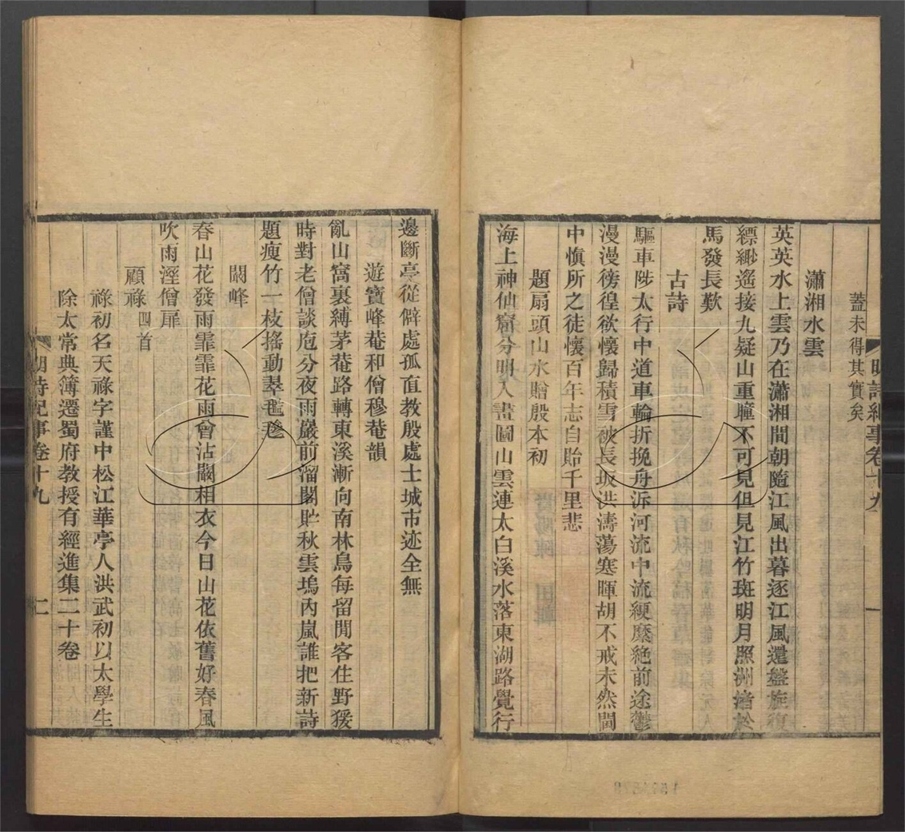 蓋未得其實矣
瀟湘水雲
英英水上雲乃在瀟湘間朝隨江風出暮逐江風還盤旋復
縹緲遙接九疑山重瞳不可見但見江竹斑明月照洲渚
馬發長歎
古詩
驅車陟太行中道車輪折挽舟泝河流中流綆縻絶前途鬱
漫漫徬徨欲懷歸積雪被長坂洪濤蕩寒暉胡不戒未然間
中慎所之徒懷百年志自貽千里悲
題扇頭山水贈殷本初
海上神仙窟分明入畫圖山雲連太白溪水落東湖路覺行
邊斷亭從僻處孤直教殷處士城市迹全無
遊寶峰菴和僧穆菴韻
亂山窩裏縛茅菴路轉東溪漸向南林鳥每留閒客住野猨
時對老僧談庖分夜雨巖前溜閣貯秋雲塢內嵐誰把新詩
題瘦竹一枝搖動翠毿毿
闞峰
春山花發雨霏霏花雨曾沾嚴相衣今日山花依舊好春風
吹雨溼僧扉
顧祿四首
祿初名天祿字謹中松江華亭人洪武初以太學生
除太常典簿遷蜀府教授有經進集二十卷
明詩紀事卷十九
一
明詩紀事卷十九
二